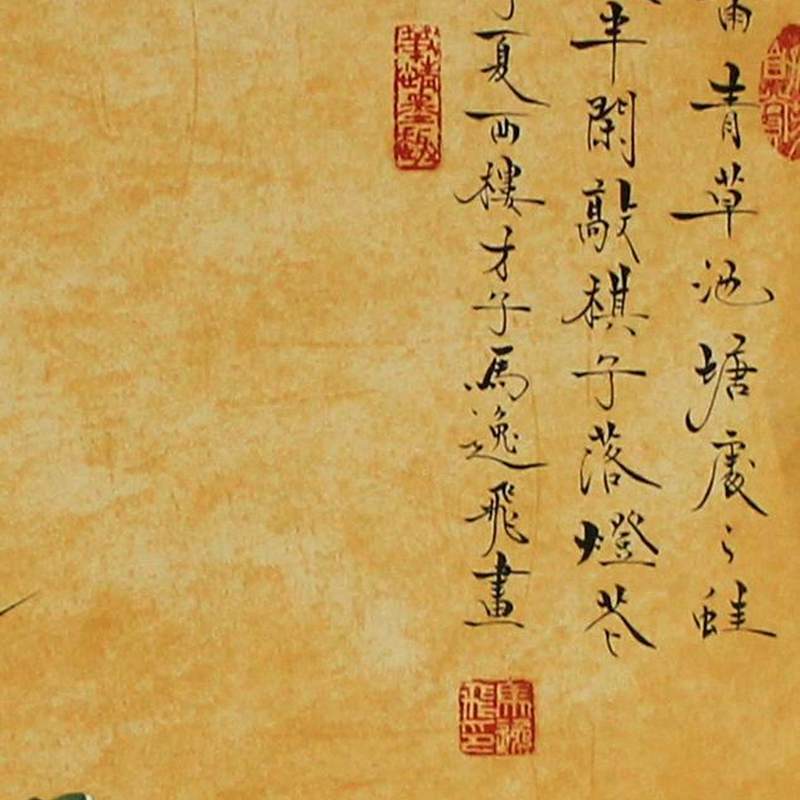 青草池塘處〻蛙
半閑敲棋子落燈花
夏西樓才子馬逸飛畫
馬逸飛印